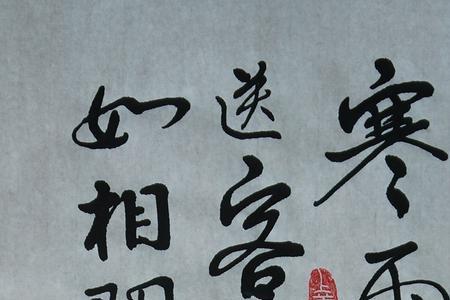 寒雨
送客
如相